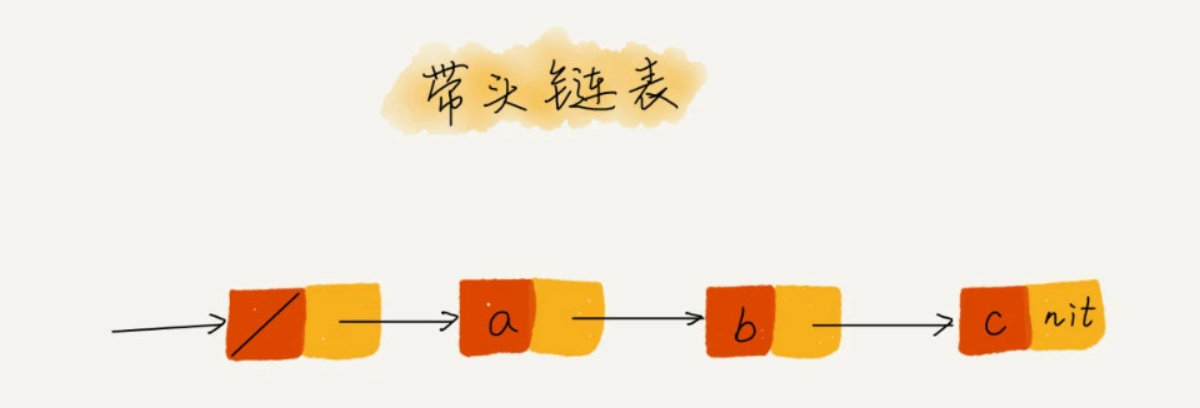 带头链表
a
b
c nit